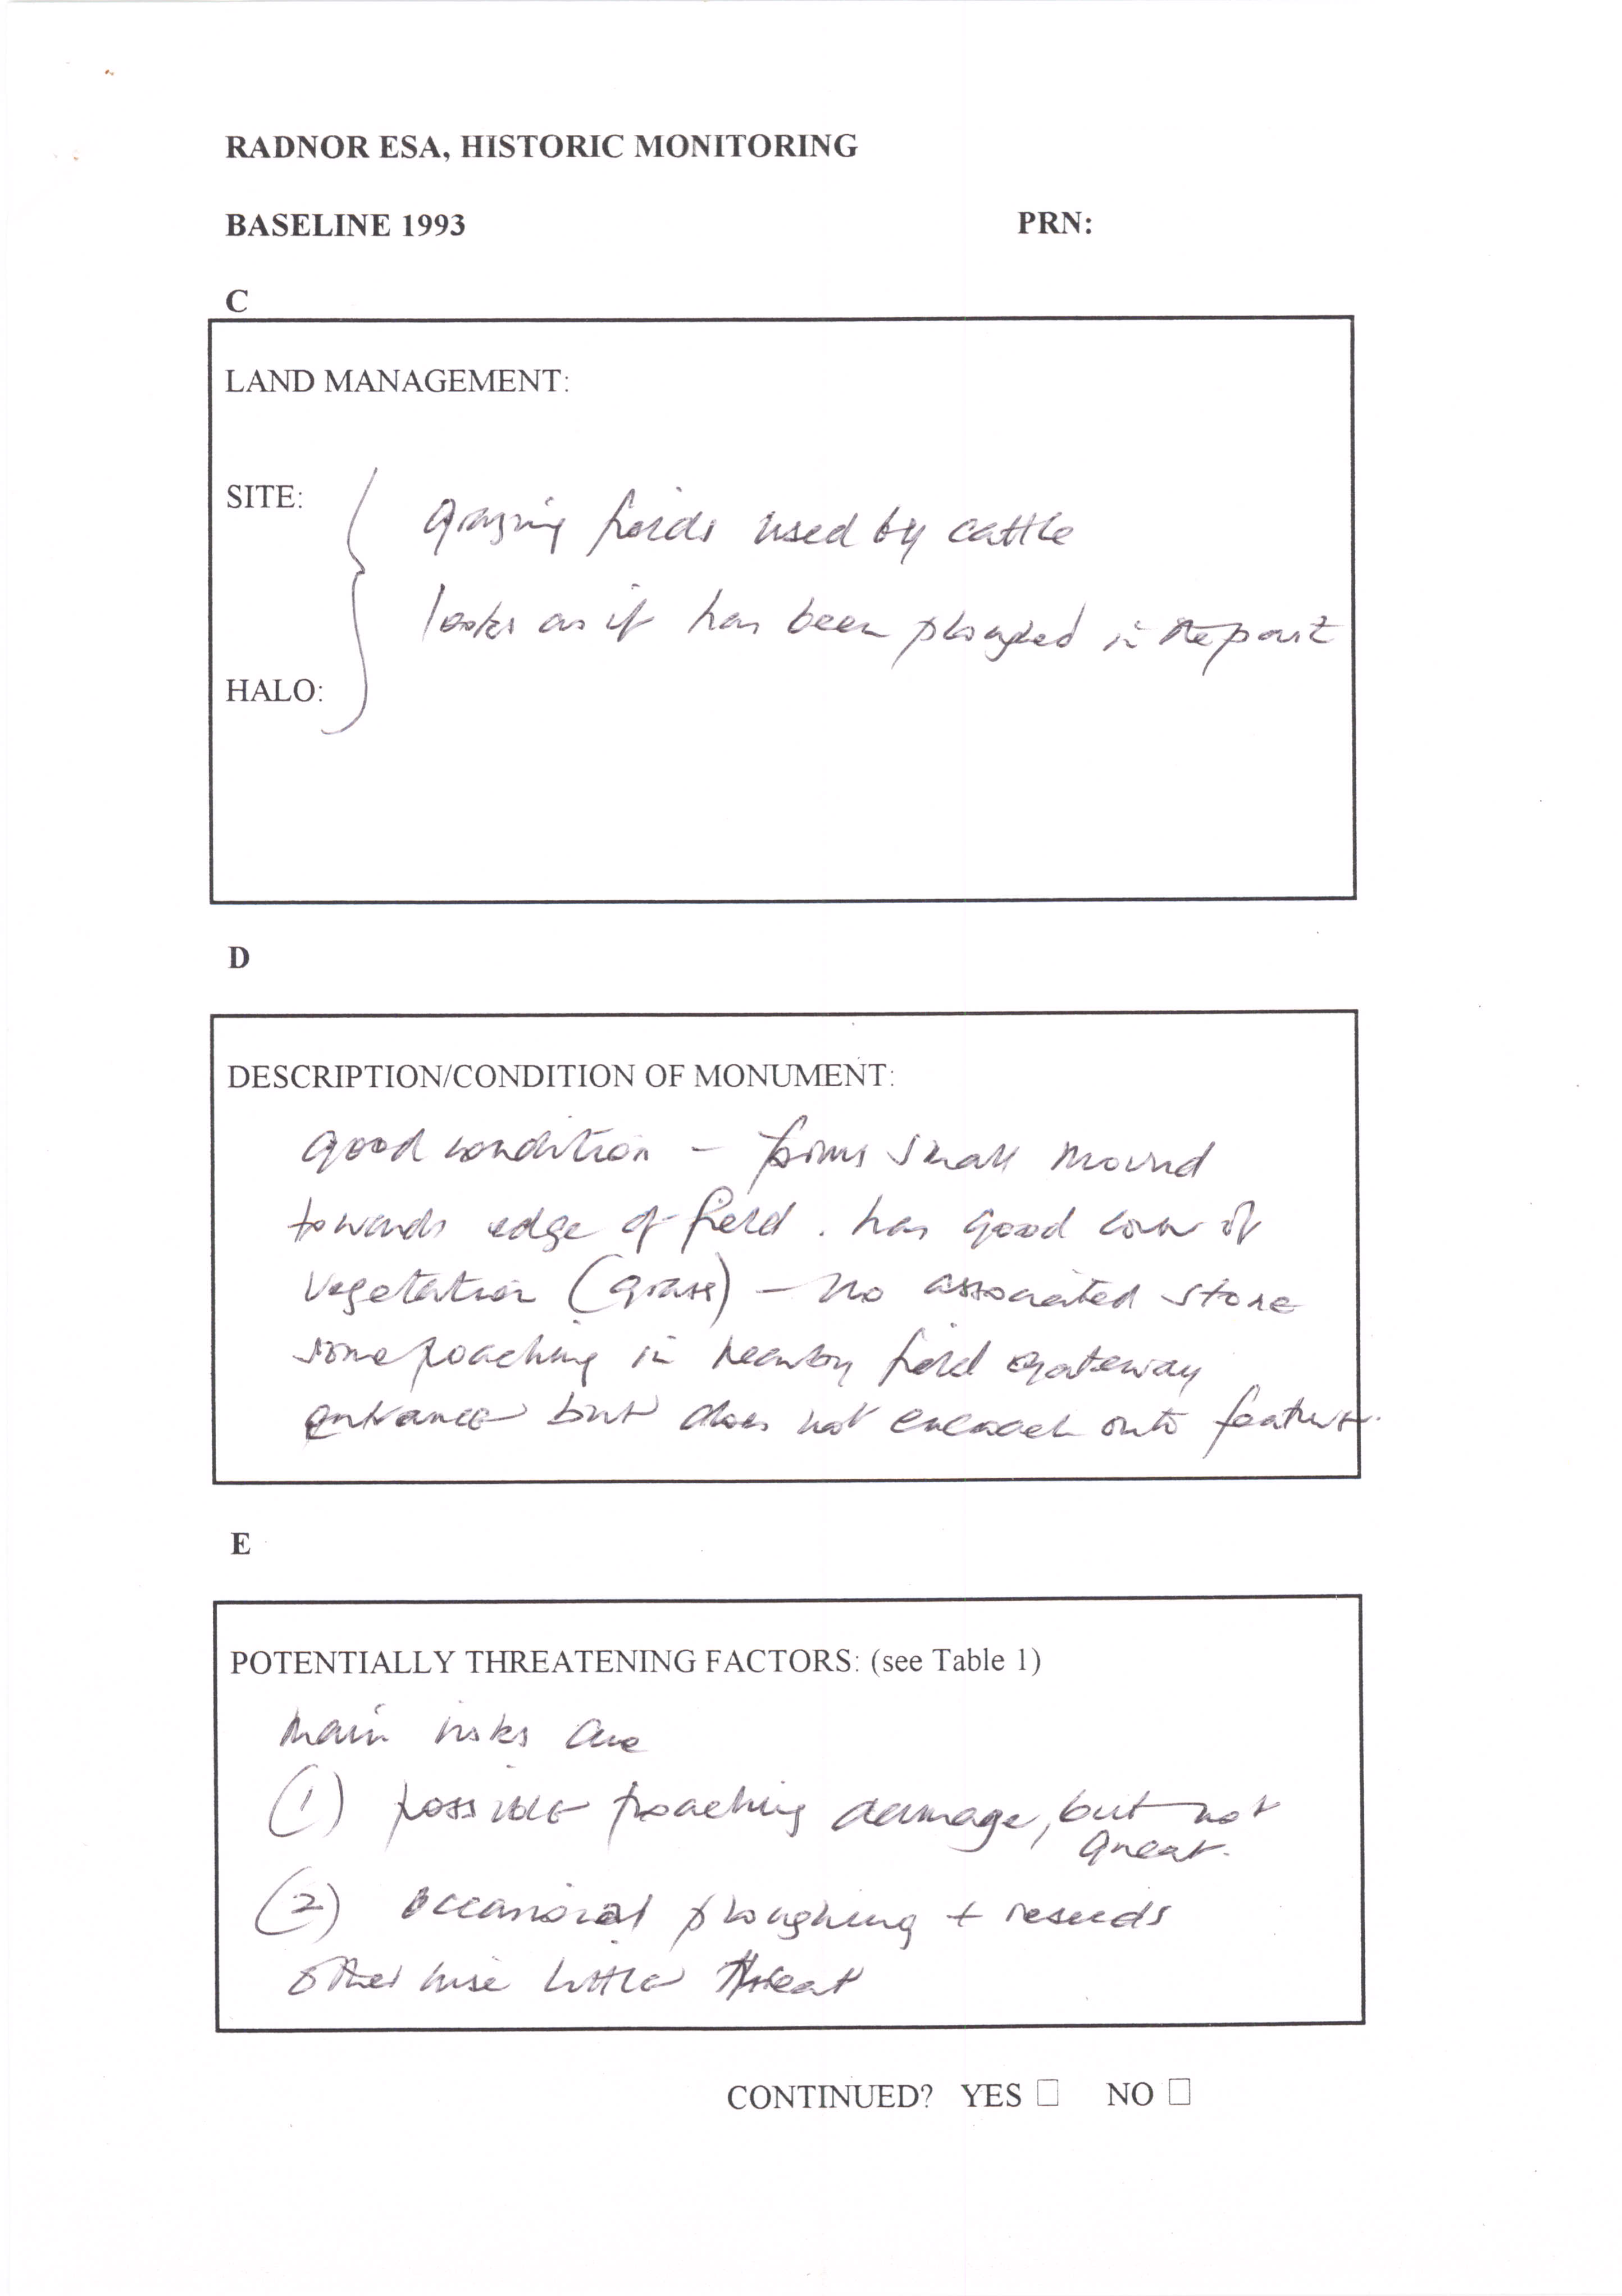 RADNOR ESA, HISTORIC MONITORING
BASELINE 1993 PRN:
C
LAND MANAGEMENT:
SITE:
grazing fields used by cattle
looks as if has been ploughed in the past
HALO:
D
DESCRIPTION/CONDITION OF MONUMENT:
good condition - forms small mound
towards edge of field. has good cover of
vegetation (grass) - no associated stone
some poaching in nearby field gateway
entrance but does not encroach onto feature.
E
POTENTIALLY THREATENING FACTORS: (see Table 1)
main risks are
(1) possible poaching damage, but not
great.
(2) occasional ploughing + reseeds
otherwise little threat
CONTINUED? YES ☐ NO ☐